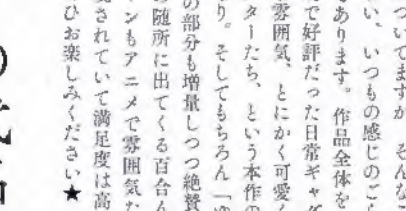 ついてますが、そんなこ
い、いつもの感じのご
あります。作品全体を
で好評だった日常ギャグ
雰囲気、とにかく可愛く
ターたち、という本作の
り。そしてもちろん「ゆ
の部分も増量しつつ絶賛
随所に出てくる百合ん
ンもアニメで雰囲気た
されていて満足度は高
ひお楽しみください★